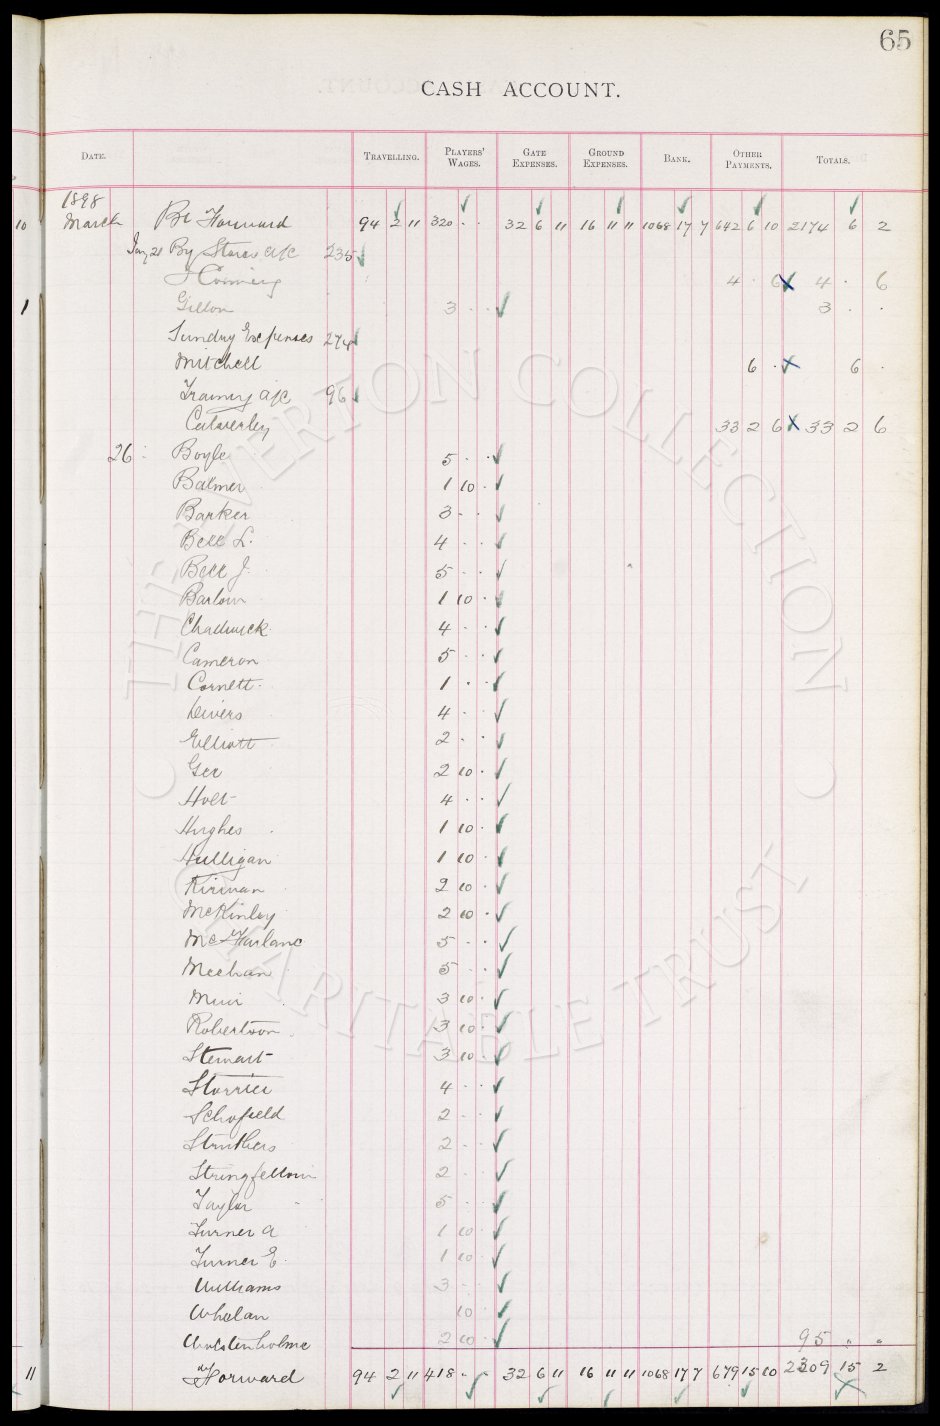 65
CASH ACCOUNT.
DATE. TRAVELLING. PLAYERS' WAGES. GATE EXPENSES. GROUND EXPENSES. BANK. OTHER PAYMENTS. TOTALS.
1898
10 March Bt Forward 94 2 11 320 . . 32 6 11 16 11 11 1068 17 7 642 6 10 2174 6 2
Jany 21 By Stores a/c 235
4 . 6 4 . 6
1 Gillon 3 . . 3 . .
Sundry Expenses 274
Mitchell 6 . 6 .
Training a/c 96
Calverley 33 2 6 33 2 6
26 Boyle 5 . .
Balmer 1 10 .
Barker 3 . .
Bell L. 4 . .
Bell J. 5 . .
Barlow 1 10 .
Chadwick 4 . .
Cameron 5 . .
Cornett 1 . .
Divers 4 . .
Elliott 2 . .
Gee 2 10 .
Holt 4 . .
Hughes 1 10 .
Hulligan 1 10 .
Kirwan 2 10 .
McKinley 2 10 .
McFarlane 5 . .
Meehan 5 . .
Muir 3 10 .
Robertson 3 10 .
Stewart 3 10 .
Storrier 4 . .
Schofield 2 . .
Struthers 2 . .
Stringfellow 2 . .
Taylor 5 . .
Turner A 1 10 .
Turner E. 1 10 .
Williams 3 . .
Whelan 10 .
Wolstenholme 2 10 . 95 " "
11 Forward 94 2 11 418 . . 32 6 11 16 11 11 1068 17 7 679 15 10 2309 15 2
THE EVERTON COLLECTION
CHARITABLE TRUST